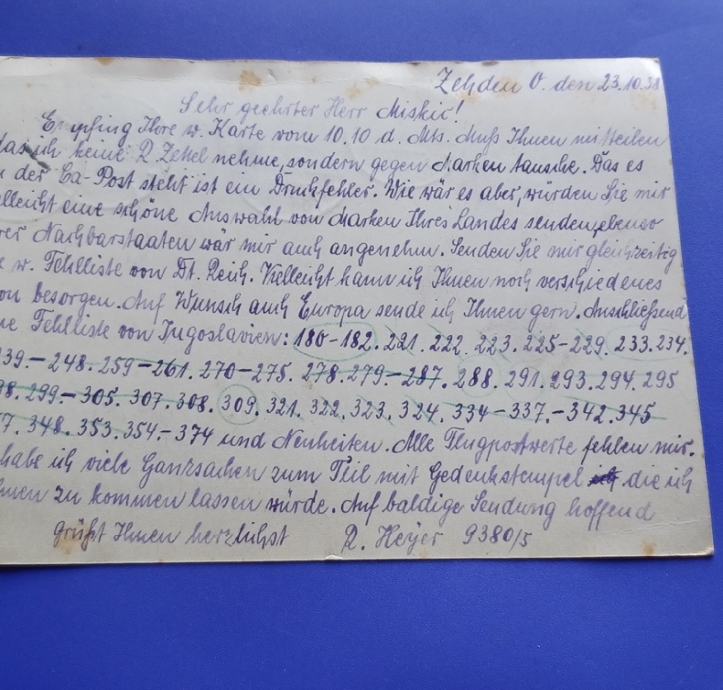 Zehden O. den 23.10.38
Sehr geehrter Herr Miskić!
Empfing Ihre w. Karte vom 10.10 d. Mts. Muß Ihnen mitteilen
das ich keine R Zettel nehme, sondern gegen Marken tausche. Das es
n der Ea-Post steht ist ein Druckfehler. Wie wär es aber, würden Sie mir
elleicht eine schöne Auswahl von Marken Ihres Landes senden, ebenso
rer Nachbarstaaten wär mir auch angenehm. Senden Sie mir gleichzeitig
e w. Fehlliste von Dt. Reich. Vielleicht kann ich Ihnen noch verschiedenes
on besorgen. Auf Wunsch auch Europa sende ich Ihnen gern. Anschließend
ne Fehlliste von Jugoslavien: 180-182. 221. 222. 223. 225-229. 233. 234.
239.-248. 259-261. 270-275. 278. 279-287. 288. 291. 293. 294. 295
98. 299-305. 307. 308. 309. 321. 322. 323. 324. 334-337.-342. 345
7. 348. 353. 354.-374 und Neuheiten. Alle Flugpostwerte fehlen mir.
habe ich viele Ganzsachen zum Teil mit Gedenkstempel die ich
hnen zu kommen lassen würde. Auf baldige Sendung hoffend
grüßt Ihnen herzlichst R. Heyer 9380/5